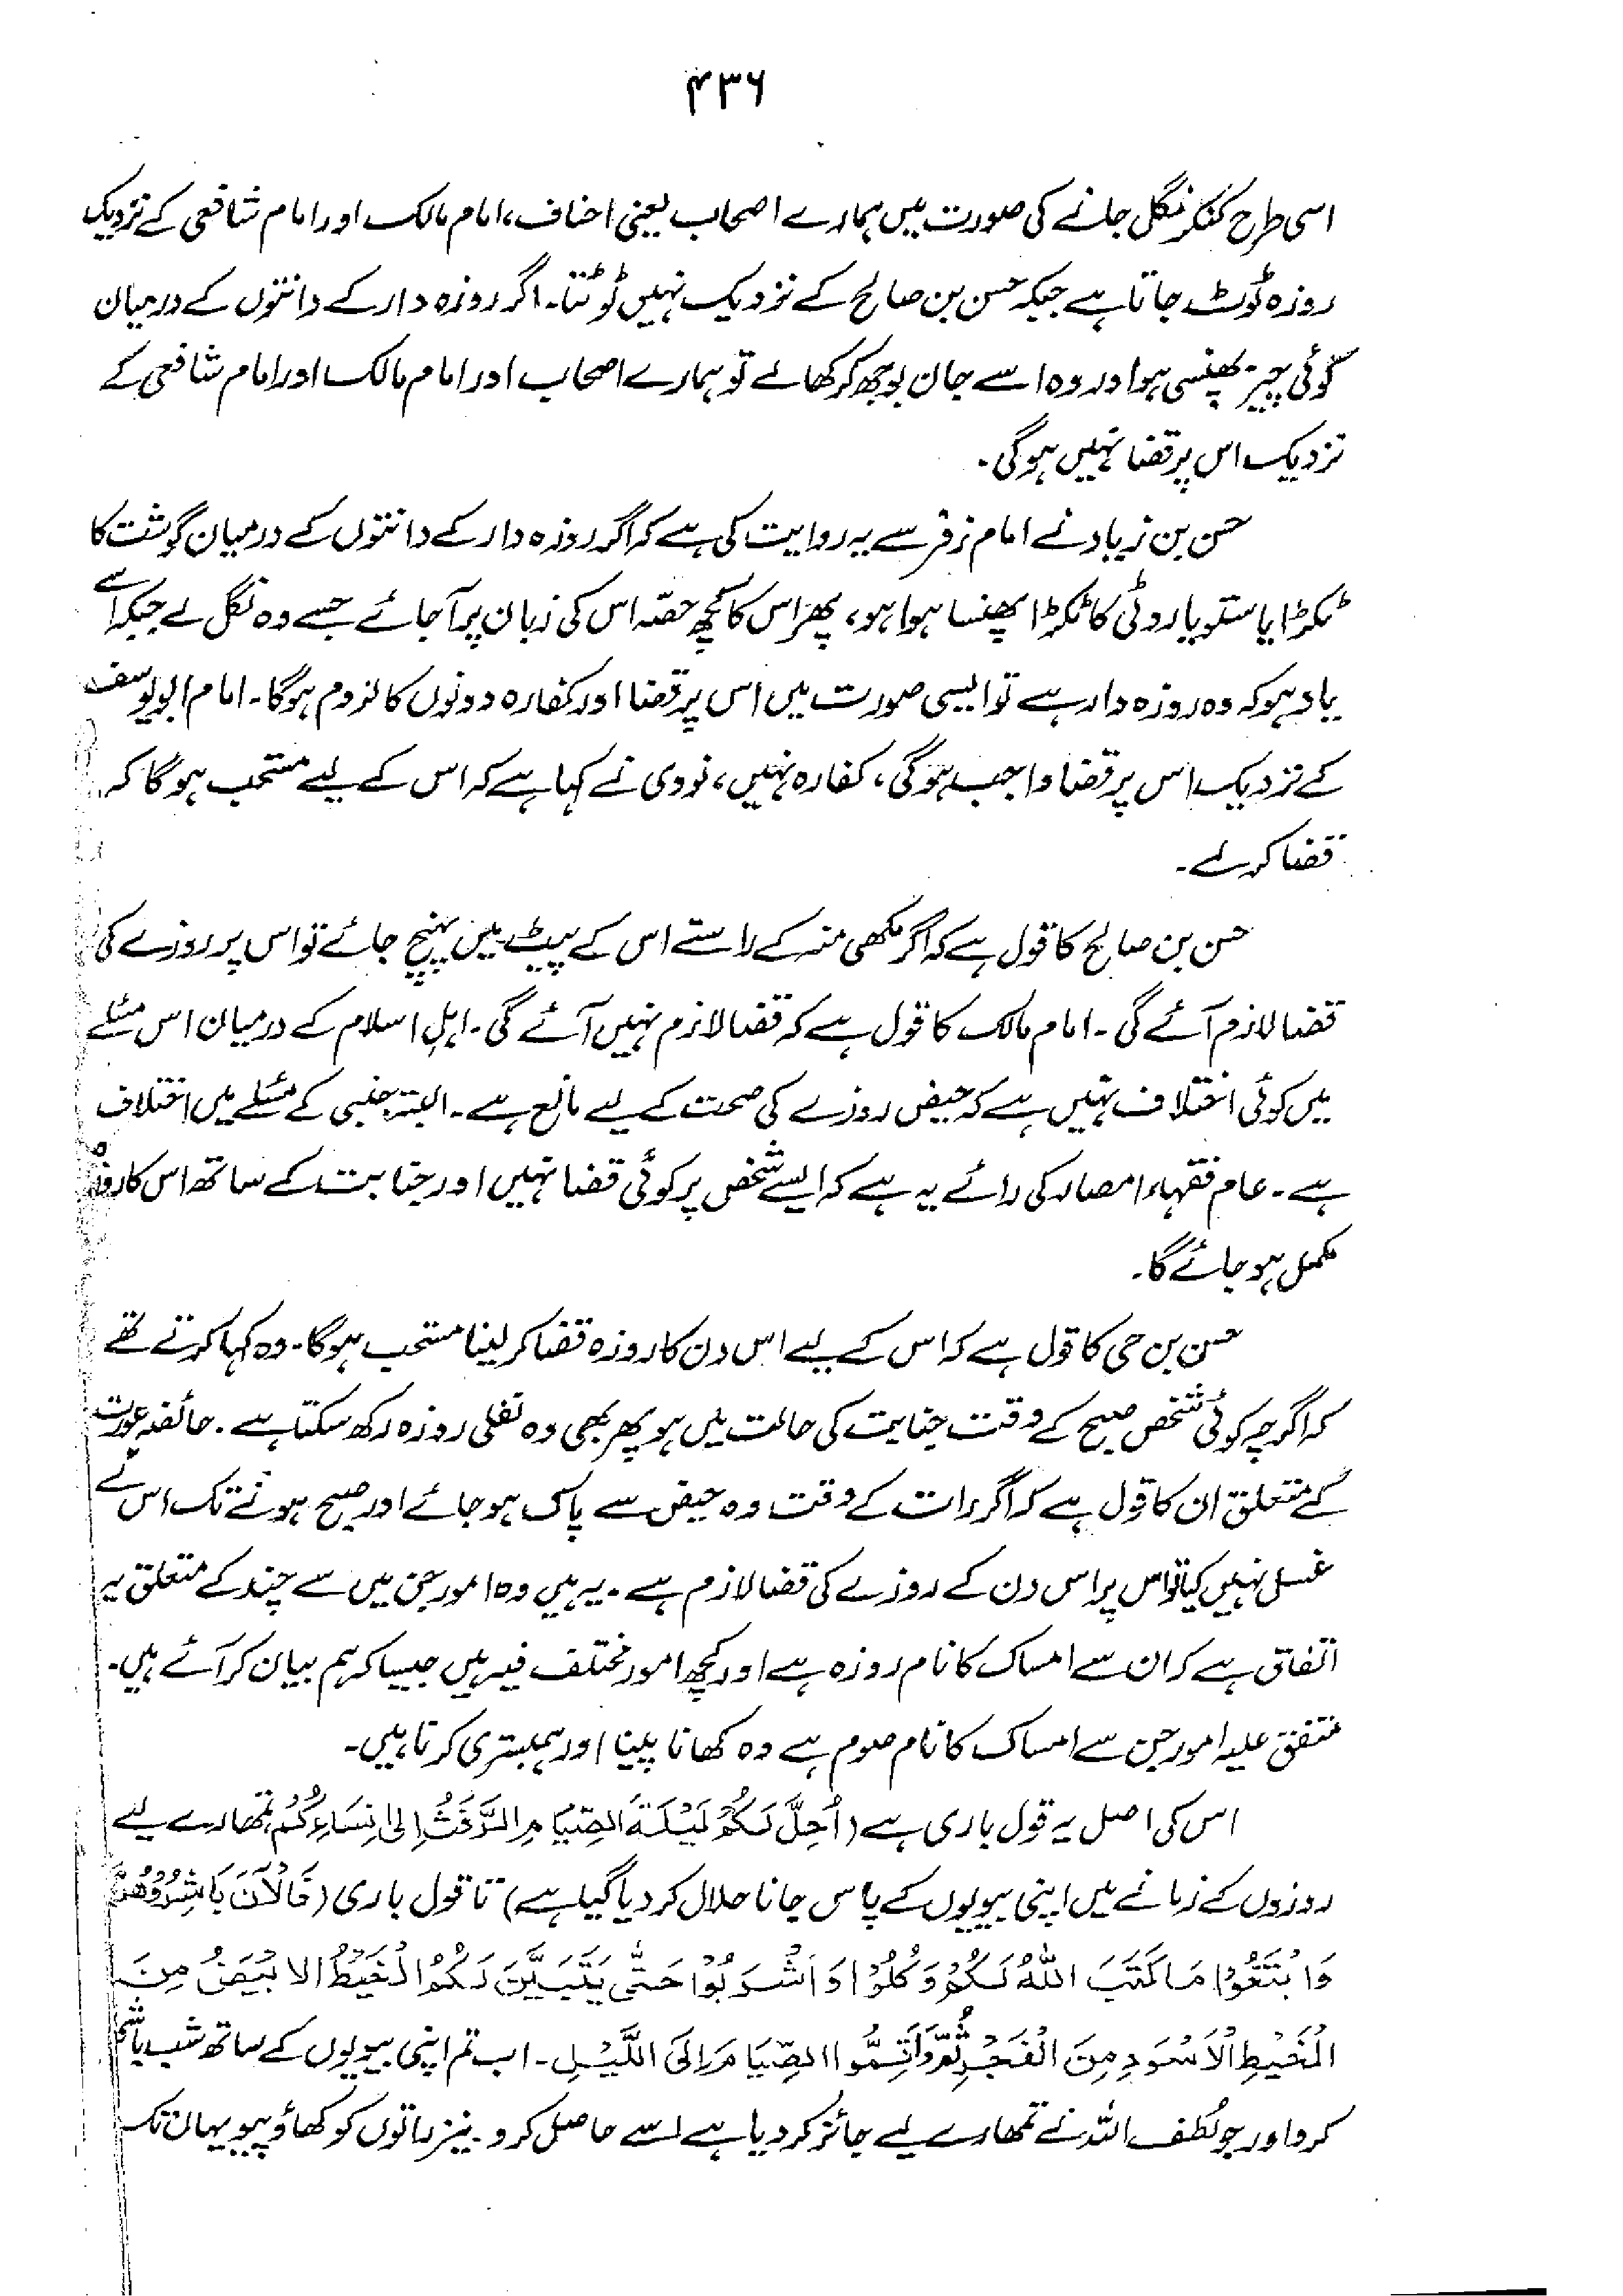 ۴۳۶
اسی طرح کنکر نگل جانے کی صورت میں ہمارے اصحاب یعنی احناف، امام مالک اور امام شافعی کے نزدیک
روزہ ٹوٹ جاتا ہے جبکہ حسن بن صالح کے نزدیک نہیں ٹوٹتا۔ اگر روزہ دار کے دانتوں کے درمیان
کوئی چیز پھنسی ہو اور وہ اسے جان بوجھ کر کھالے تو ہمارے اصحاب اور امام مالک اور امام شافعی کے
نزدیک اس پر قضا نہیں ہوگی۔
حسن بن زیاد نے امام زفر سے یہ روایت کی ہے کہ اگر روزہ دار کے دانتوں کے درمیان گوشت کا
ٹکڑا یا ستو یا روٹی کا ٹکڑا پھنسا ہوا ہو، پھر اس کا کچھ حصّہ اس کی زبان پر آجائے جسے وہ نگل لے جبکہ اسے
یاد ہو کہ وہ روزہ دار ہے تو ایسی صورت میں اس پر قضا اور کفارہ دونوں کا لزوم ہوگا۔ امام ابویوسف
کے نزدیک اس پر قضا واجب ہوگی، کفارہ نہیں، نووی نے کہا ہے کہ اس کے لیے مستحب ہوگا کہ
قضا کرلے۔
حسن بن صالح کا قول ہے کہ اگر مکھی منہ کے راستے اس کے پیٹ میں پہنچ جائے تو اس پر روزے کی
قضا لازم آئے گی۔ امام مالک کا قول ہے کہ قضا لازم نہیں آئے گی۔ اہلِ اسلام کے درمیان اس مسئلے
میں کوئی اختلاف نہیں ہے کہ حیض روزے کی صحت کے لیے مانع ہے۔ البتہ جنبی کے مسئلے میں اختلاف
ہے۔ عام فقہاء امصار کی رائے یہ ہے کہ ایسے شخص پر کوئی قضا نہیں اور جنابت کے ساتھ اس کا روزہ
مکمل ہو جائے گا۔
حسن بن حی کا قول ہے کہ اس کے لیے اس دن کا روزہ قضا کر لینا مستحب ہوگا۔ وہ کہا کرتے تھے
کہ اگرچہ کوئی شخص صبح کے وقت جنابت کی حالت میں ہو پھر بھی وہ نفلی روزہ رکھ سکتا ہے۔ حائضہ عورت
کے متعلق ان کا قول ہے کہ اگر رات کے وقت وہ حیض سے پاک ہو جائے اور صبح ہونے تک اس نے
غسل نہیں کیا تو اس پر اس دن کے روزے کی قضا لازم ہے۔ یہ ہیں وہ امور جن میں سے چند کے متعلق یہ
اتفاق ہے کہ ان سے امساک کا نام روزہ ہے اور کچھ امور مختلف فیہ ہیں جیسا کہ ہم بیان کر آئے ہیں۔
متفق علیہ امور جن سے امساک کا نام صوم ہے وہ کھانا پینا اور ہمبستری کرنا ہیں۔
اس کی اصل یہ قول باری ہے (اُحِلَّ لَکُمْ لَیْلَۃَ الصِّیَامِ الرَّفَثُ اِلیٰ نِسَاءِکُمْ، تمھارے لیے
روزوں کے زمانے میں اپنی بیویوں کے پاس جانا حلال کر دیا گیا ہے) تا قول باری (فَالْاٰنَ بَاشِرُوْھُنَّ
وَابْتَغُوْا مَا کَتَبَ اللّٰہُ لَکُمْ وَکُلُوْا وَاشْرَبُوْا حَتّٰی یَتَبَیَّنَ لَکُمُ الْخَیْطُ الْاَبْیَضُ مِنَ
الْخَیْطِ الْاَسْوَدِ مِنَ الْفَجْرِ ثُمَّ اَتِمُّوا الصِّیَامَ اِلَی اللَّیْلِ۔ اب تم اپنی بیویوں کے ساتھ شب باشی
کرو اور جو لُطف اللہ نے تمھارے لیے جائز کر دیا ہے اسے حاصل کرو۔ نیز راتوں کو کھاؤ پیو یہاں تک